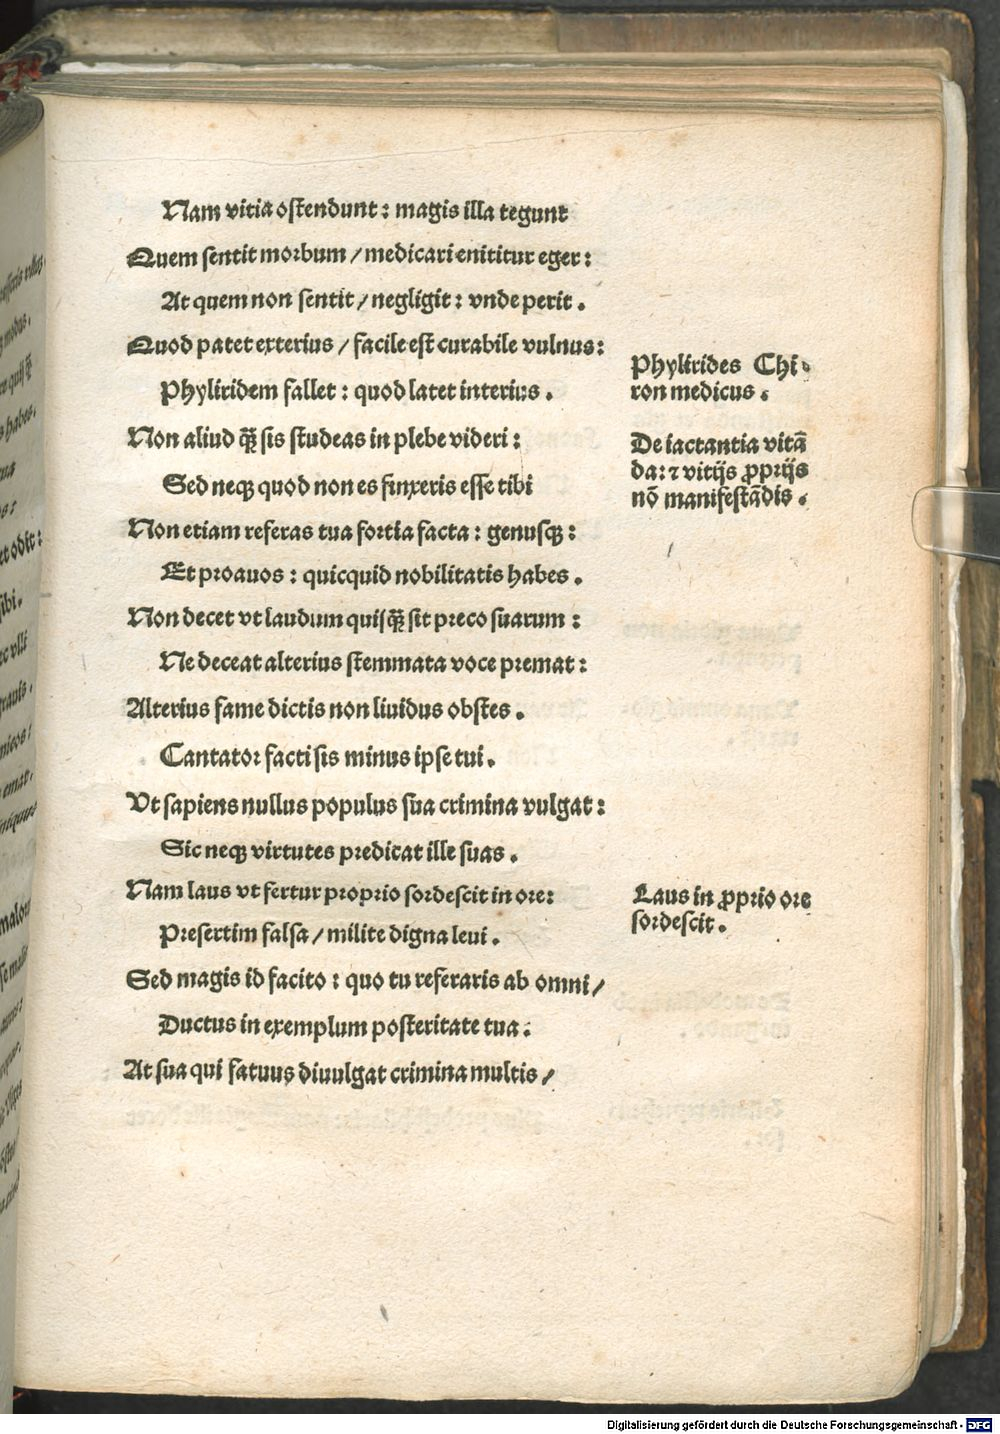 Nam vitia ostendunt : magis illa tegunt
Quem sentit morbum / medicari enititur eger :
At quem non sentit / negligit : vnde perit .
Quod patet exterius / facile est curabile vulnus :
Phyliridem fallet : quod latet interius .
Non aliud qȝ̃ sis studeas in plebe videri :
Sed neqȝ quod non es finxeris esse tibi
Non etiam referas tua fortia facta : genusqȝ :
Et proauos : quicquid nobilitatis habes .
Non decet vt laudum quisqȝ̃ sit preco suarum :
Ne deceat alterius stemmata voce premat :
Alterius fame dictis non liuidus obstes .
Cantator facti sis minus ipse tui .
Vt sapiens nullus populus sua crimina vulgat :
Sic neqȝ virtutes predicat ille suas .
Nam laus vt fertur proprio sordescit in ore :
Presertim falsa / milite digna leui .
Sed magis id facito : quo tu referaris ab omni /
Ductus in exemplum posteritate tua .
At sua qui fatuus diuulgat crimina multis /
Phylirides Chi-
ron medicus .
De iactantia vitã
da: ⁊ vitijs ꝓprijs
nõ manifestãdis .
Laus in ꝓprio ore
sordescit .
Digitalisierung gefördert durch die Deutsche Forschungsgemeinschaft - DFG